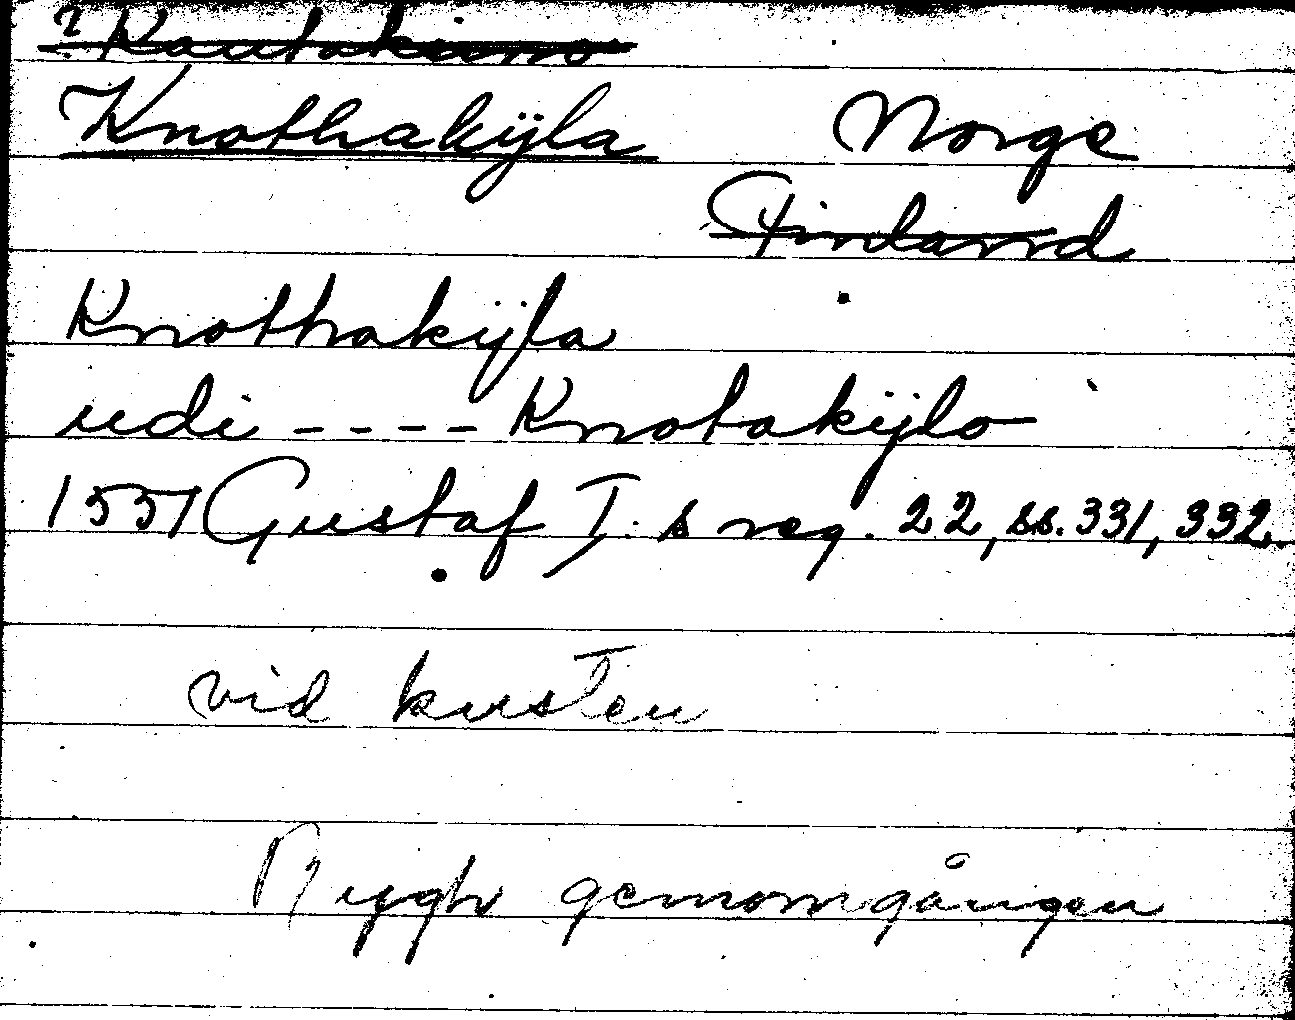 ? Kautokeino
Knothakÿla Norge
Finland
Knothakÿla
udi ---- Knotakÿlo
1557 Gustaf I:s reg. 22, ss. 331, 332.
vid kusten
Rygh genomgången